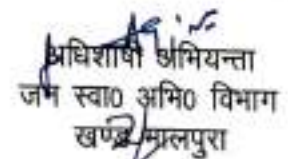 अधिशाषी अभियन्ता
जन स्वा0 अभि0 विभाग
खण्ड मालपुरा